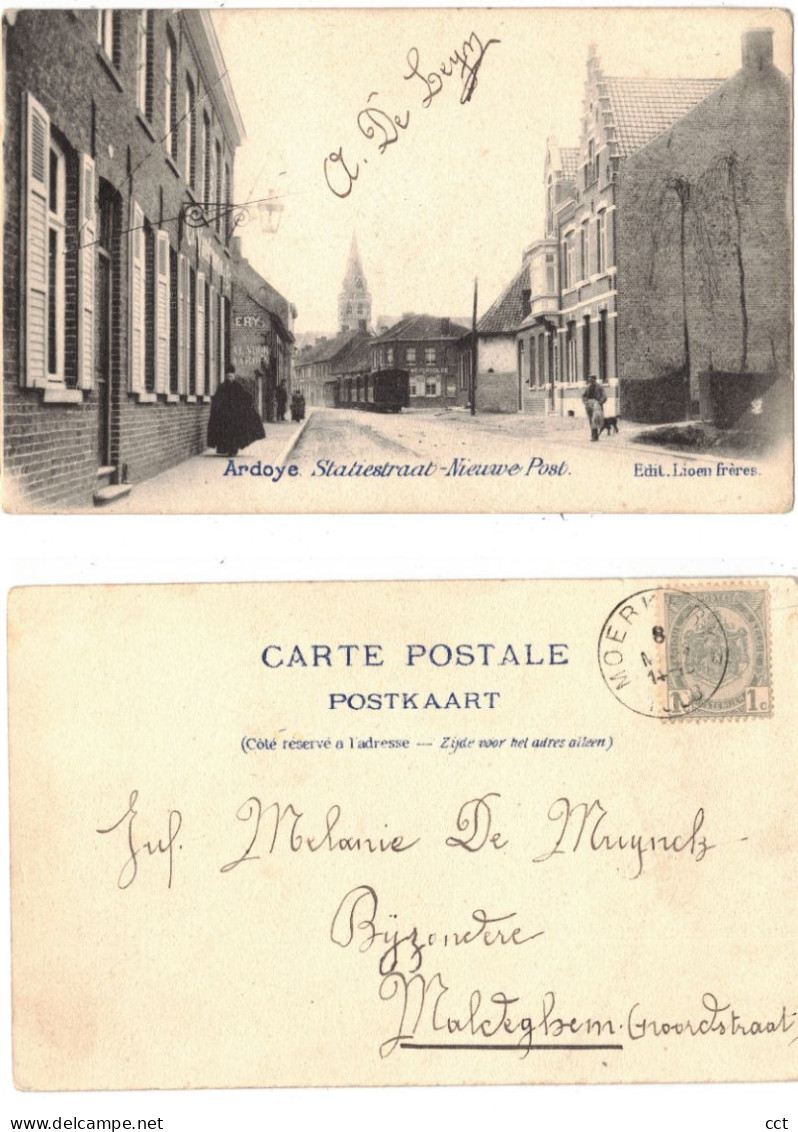 A. De Leyn
ERY
Ardoye. Statiestraat-Nieuwe Post.
Edit. Lioen frères.
CARTE POSTALE
POSTKAART
(Côté réservé a l'adresse — Zijde voor het adres alleen)
MOERK
8
14
1c
Juf. Melanie De Muynck
Bijzondere
Maldeghem. (Noordstraat)
cct